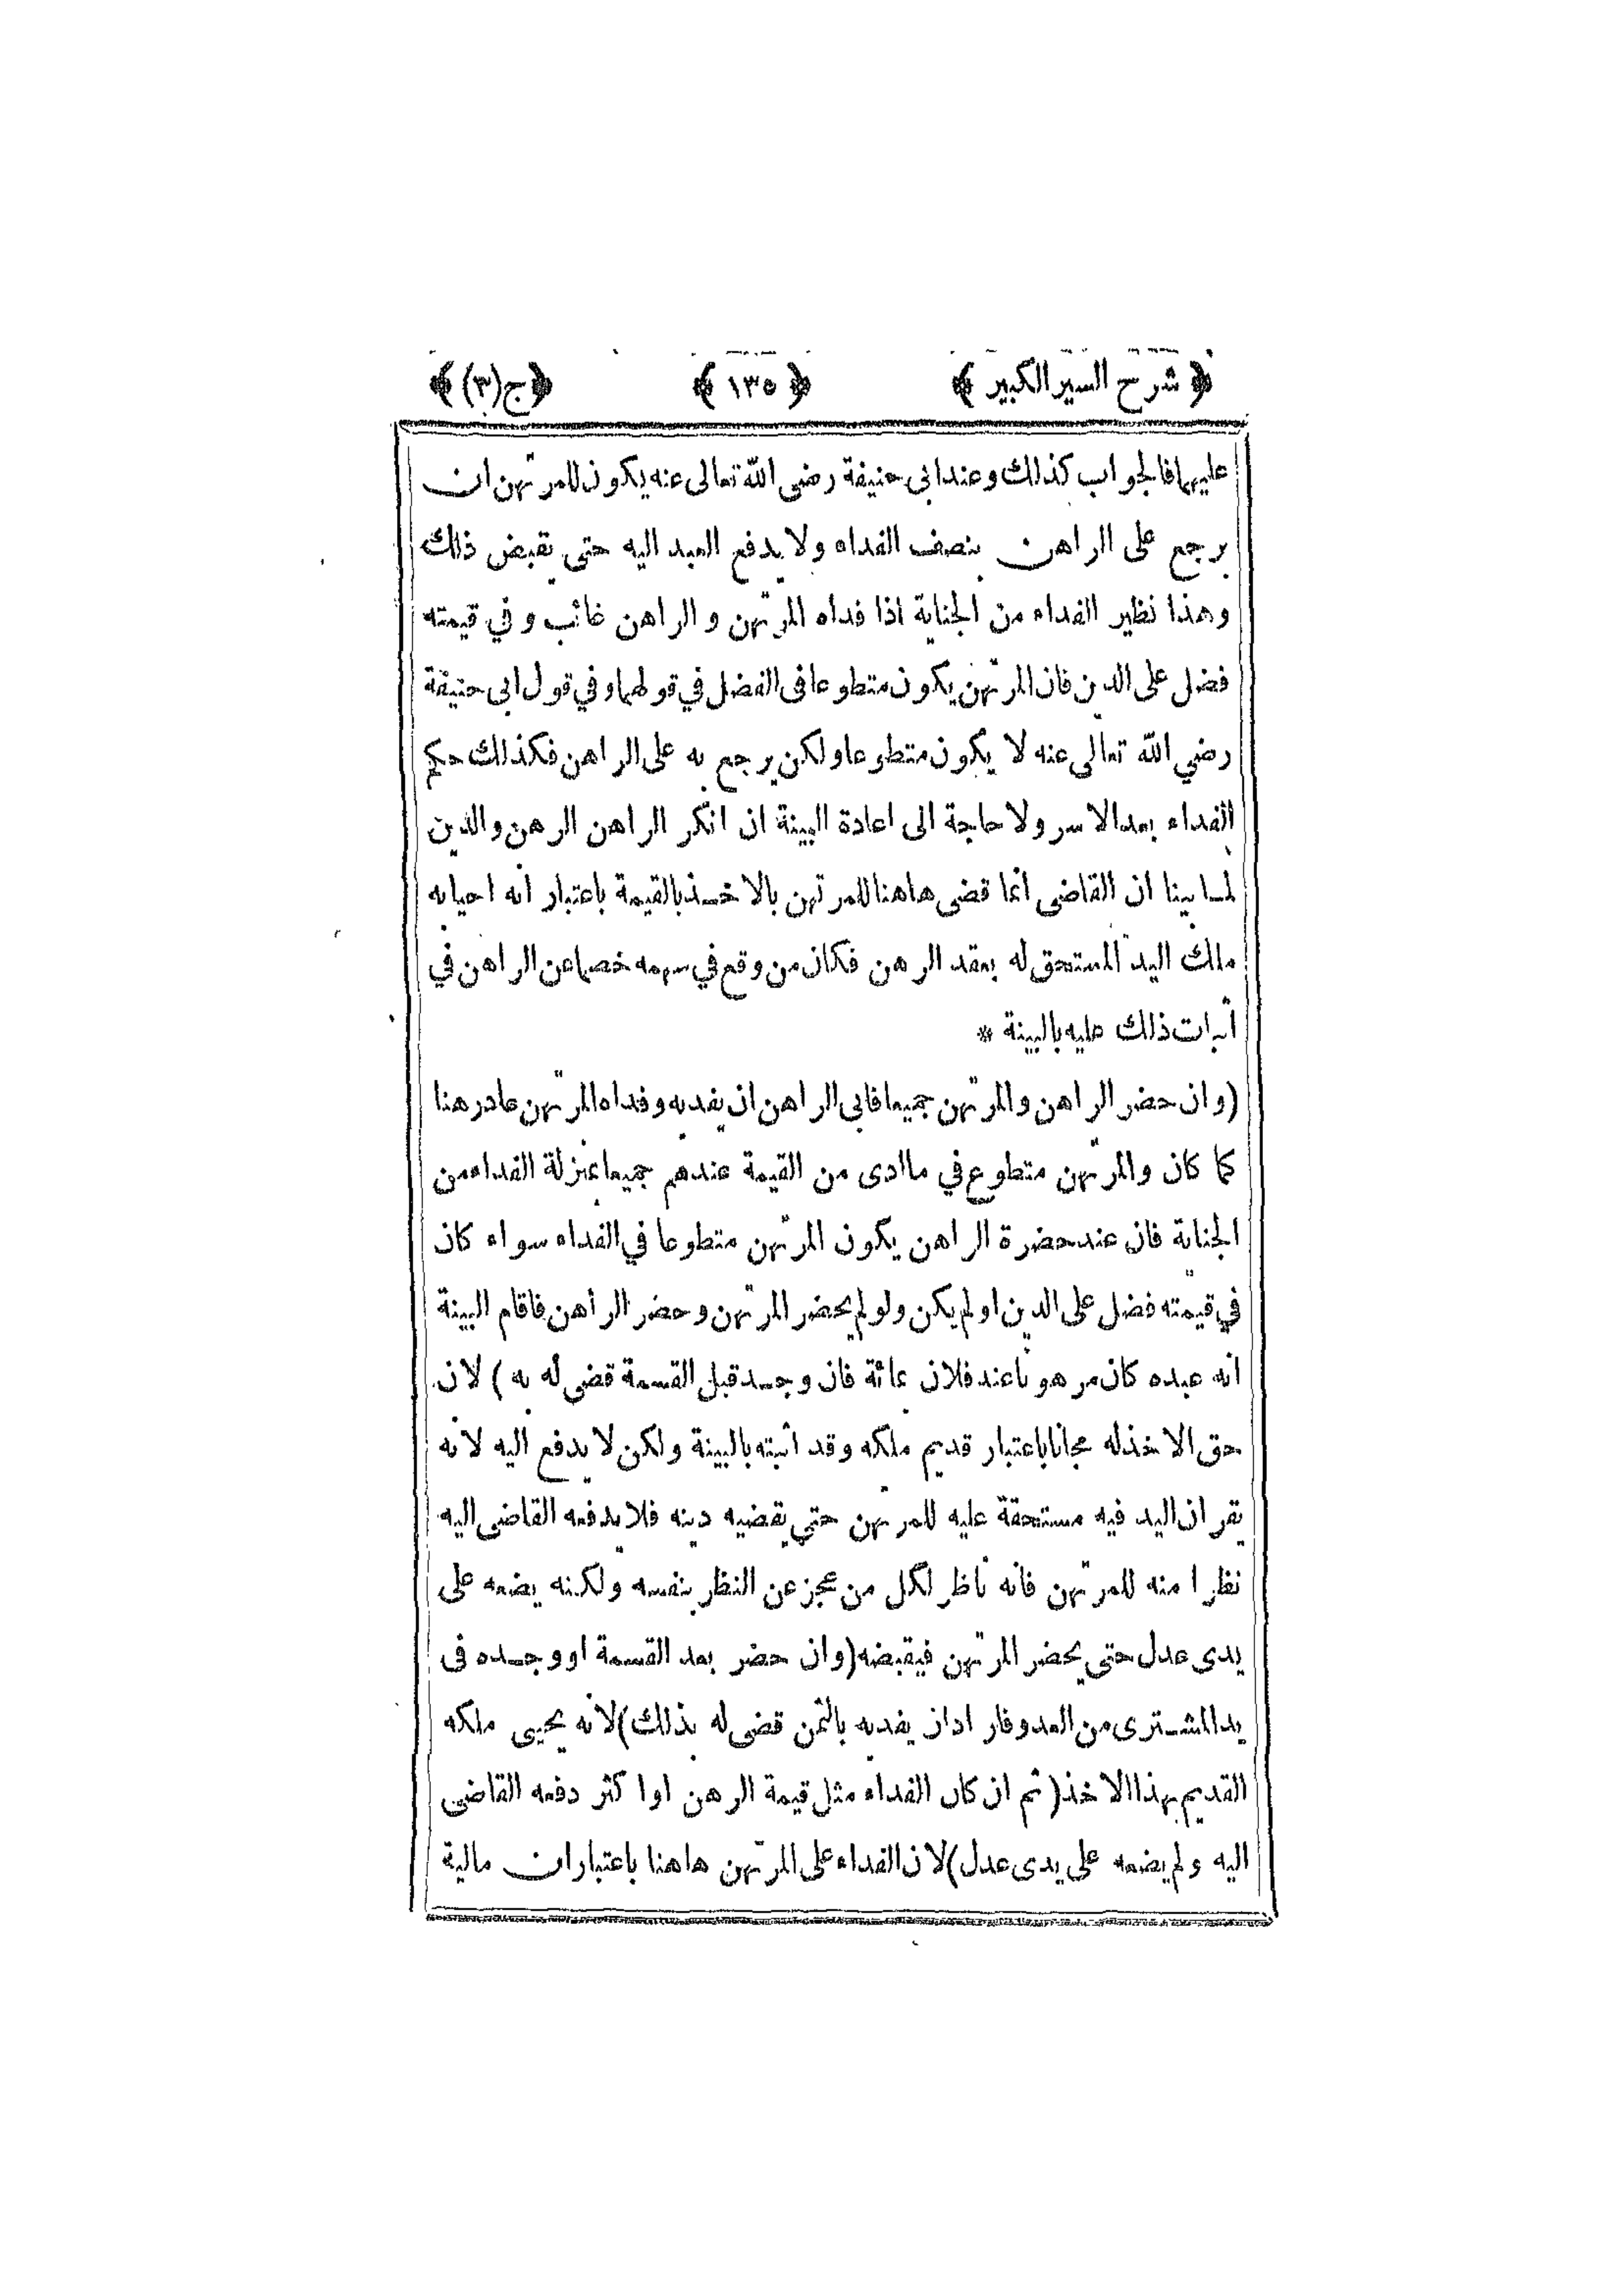 ﴿ شرح السير الكبير ﴾ ﴿ ١٣٥ ﴾ ﴿ ج (٣) ﴾
عليهما فالجواب كذلك وعند ابى حنيفة رضى الله تعالى عنه يكون للمرتهن ان
يرجع على الراهن بنصف الفداء ولا يدفع العبد اليه حتى يقبض ذلك
وهذا نظير الفداء من الجناية اذا فداه المرتهن و الراهن غائب و في قيمته
فضل على الدين فان المرتهن يكون متطوعا فى الفضل في قولهما و في قول ابى حنيفة
رضي الله تعالى عنه لا يكون متطوعا ولكن يرجع به على الراهن فكذلك حكم
الفداء بعد الاسر ولا حاجة الى اعادة البينة ان انكر الراهن الرهن والدين
لما بينا ان القاضى انما قضى هاهنا للمرتهن بالاخذ بالقيمة باعتبار انه احيا به
ملك اليد المستحق له بعقد الرهن فكان من وقع في سهمه خصما عن الراهن في
اثبات ذلك عليه بالبينة *
(وان حضر الراهن والمرتهن جميعا فابى الراهن ان يفديه وفداه المرتهن عاد رهنا
كما كان والمرتهن متطوع في ما ادى من القيمة عندهم جميعا بمنزلة الفداء من
الجناية فان عند حضرة الراهن يكون المرتهن متطوعا في الفداء سواء كان
في قيمته فضل على الدين او لم يكن ولو لم يحضر المرتهن وحضر الراهن فاقام البينة
انه عبده كان مرهونا عند فلان بمائة فان وجد قبل القسمة قضى له به ) لان
حق الاخذ له مجانا باعتبار قديم ملكه وقد اثبته بالبينة ولكن لا يدفع اليه لانه
يقر ان اليد فيه مستحقة عليه للمرتهن حتى يقضيه دينه فلا يدفعه القاضى اليه
نظرا منه للمرتهن فانه ناظر لكل من عجز عن النظر بنفسه ولكنه يضعه على
يدى عدل حتى يحضر المرتهن فيقبضه (وان حضر بعد القسمة او وجده فى
يد المشترى من العدو فاراد ان يفديه بالثمن قضى له بذلك) لانه يحيى ملكه
القديم بهذا الاخذ (ثم ان كان الفداء مثل قيمة الرهن او اكثر دفعه القاضى
اليه ولم يضعه على يدى عدل) لان الفداء على المرتهن هاهنا باعتبار ان مالية